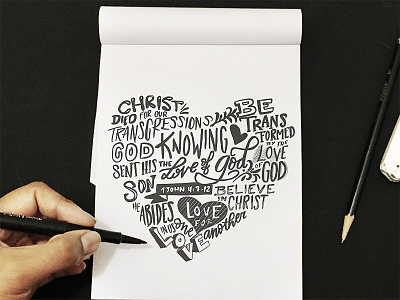 CHRIST
DIED FOR OUR
TRANSGRESSIONS
GOD
SENT HIS
SON
KNOWING
THE Love of God
BE
TRANS
FORMED
BY THE
LOVE
OF
GOD
1 JOHN 4:7-12
BELIEVE
IN CHRIST
HE
ABIDES
IN US
LOVE
FOR
one
another
LOVE